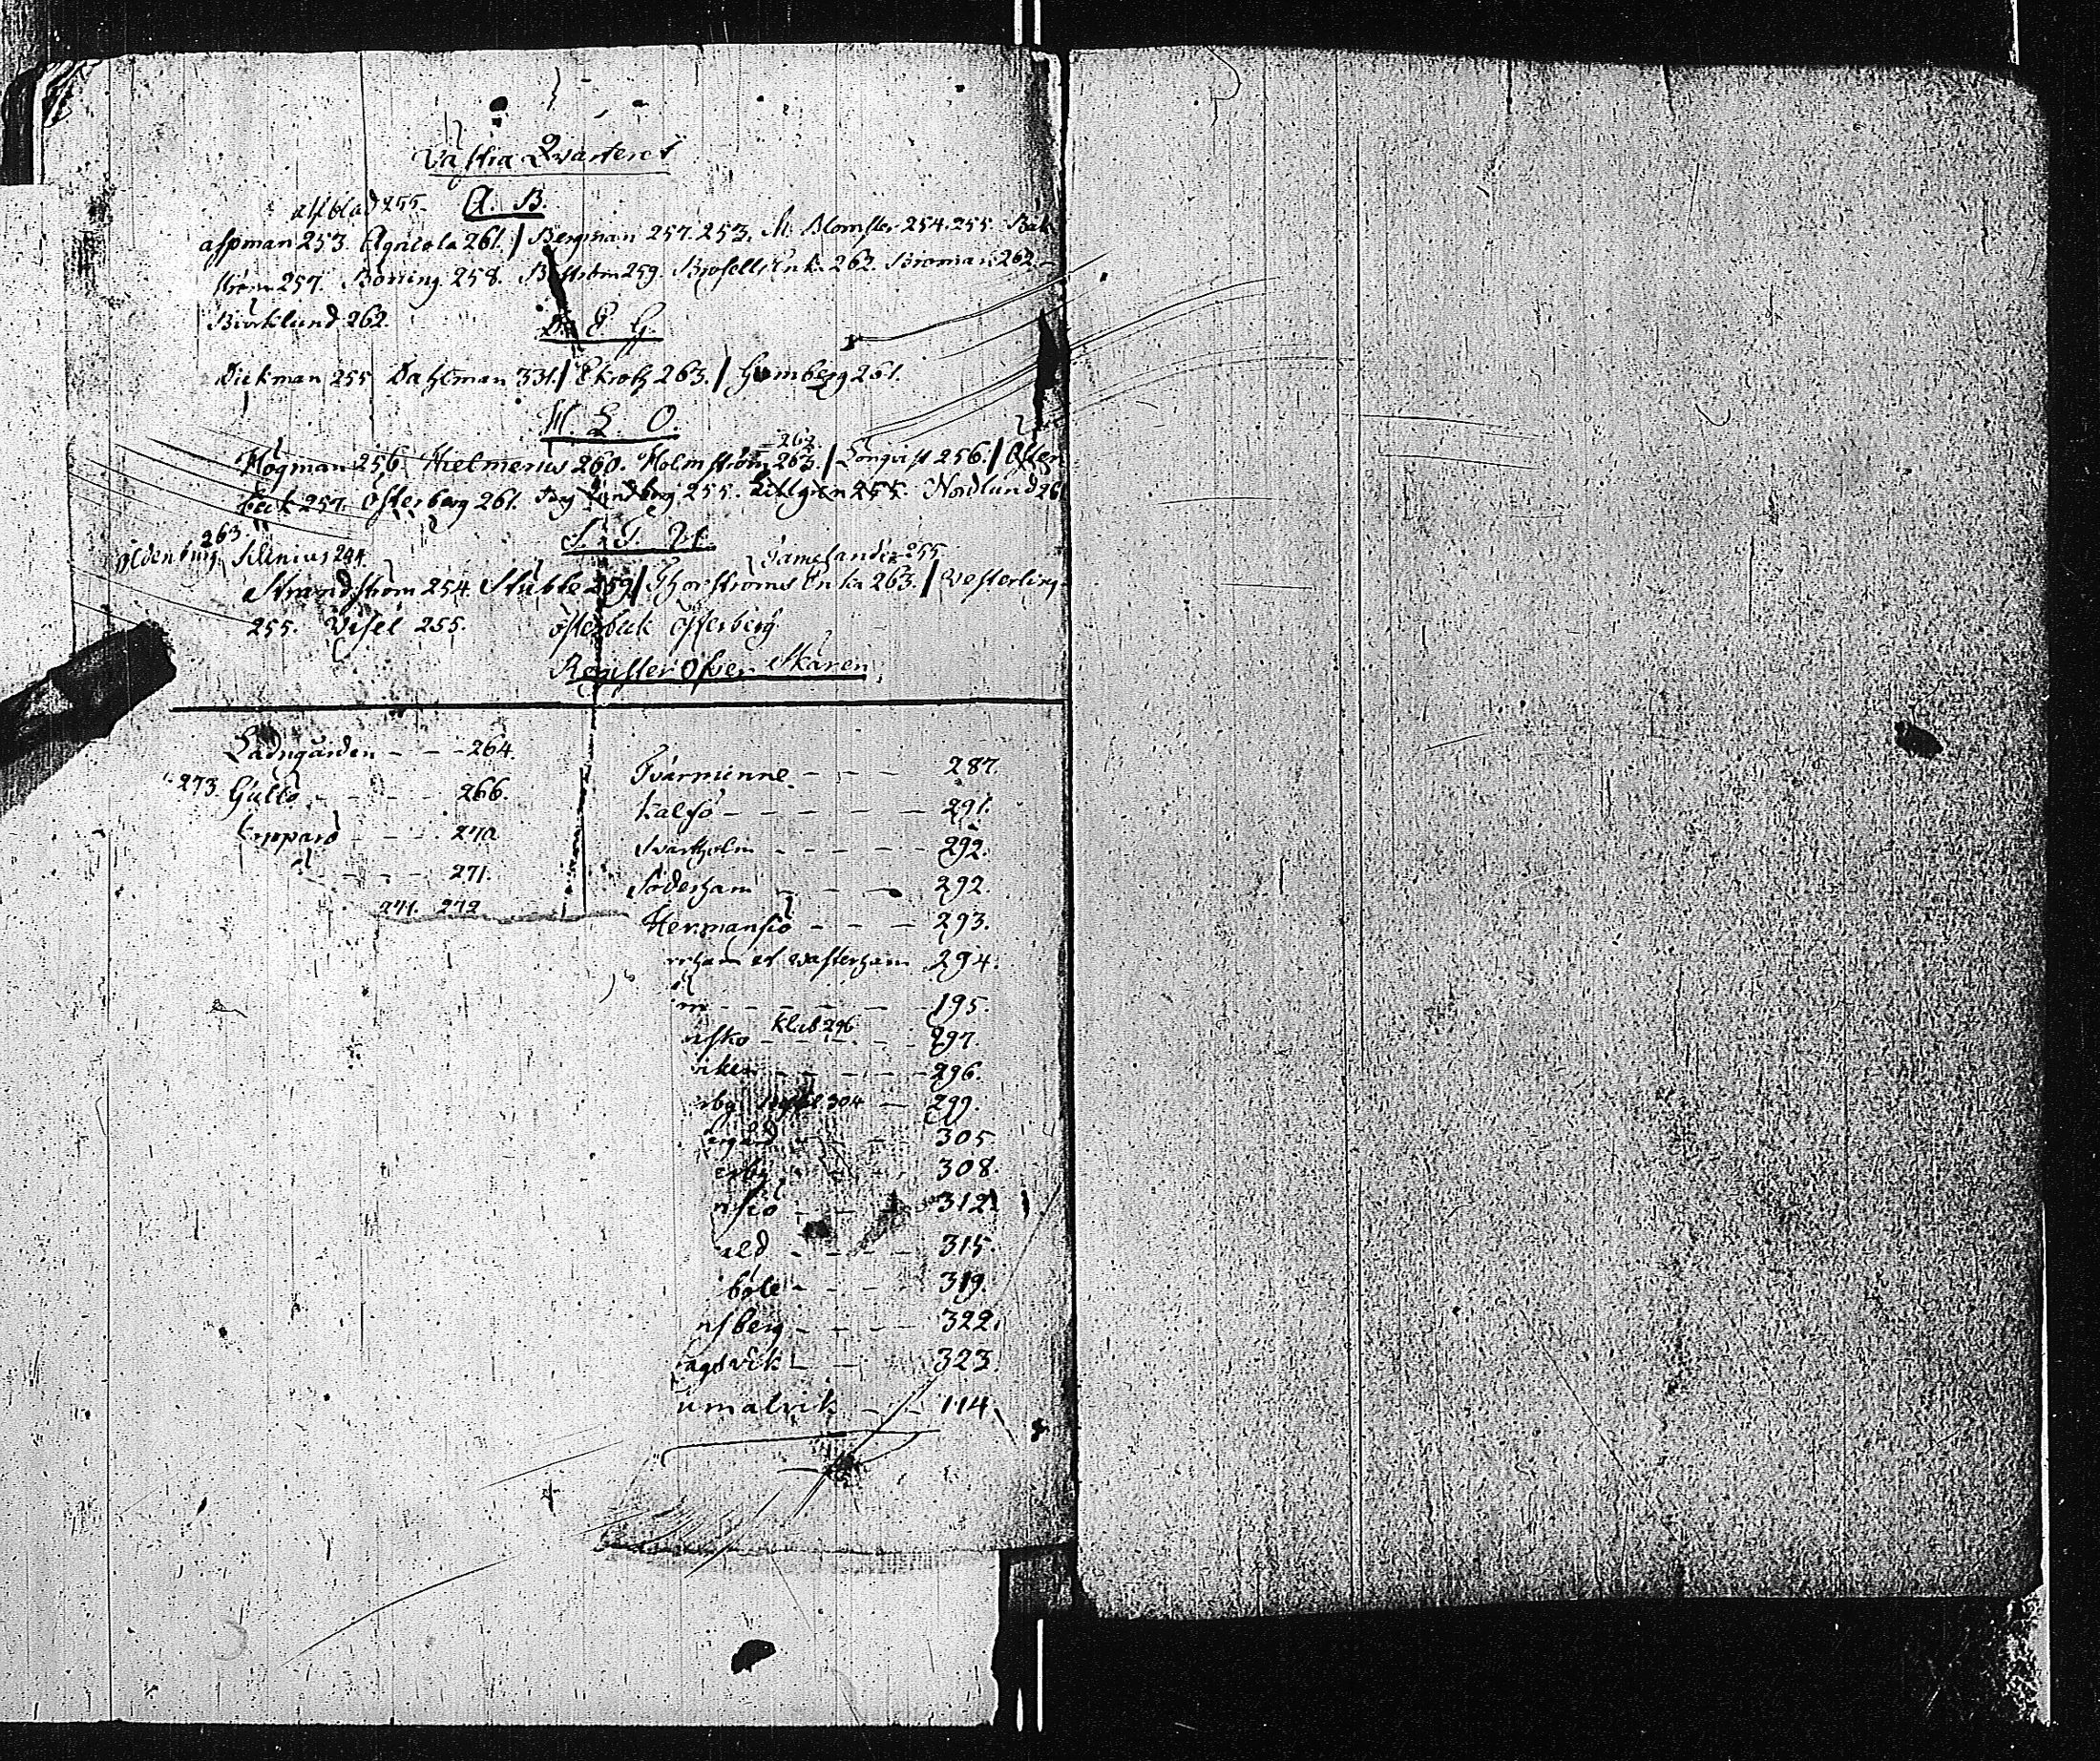 Västra Qvarteret
alfblad 255. A. B.
aspman 253. Agricola 261. / Bergman 257. 253. M. Blomster 254. 255. Bäk
ström 257. Borring 258. Boström 259. Brosell Enk. 262. Broman 262
Biörklund 262.
D. E. G.
Dickman 255 Dahlman 331. / Ekroth 263. / Gumberg 261.
H. L. O.
262
Högman 256. Hielmerus 260. Holmström 263. / Lönqvist 256. / Öster
beck 257. österberg 261. Lindberg 255. Lillgren 255. Nordlund 261
263
oldenburg Silenius 244. Tamelander 255
Strandström 254. Stubbe 259 / Thorströms Enka 263. / Westerling
255. Visel 255. österbeck österberg
Register öfver Skären
Ladugården - - - 264.
273. Gullö - - - - 266.
Koppard - - - 270
- - - - 271.
271. 272
Tvärminne - - - 287.
kalfö - - - - - - 291.
Svartholm - - - - 292.
Söderham - - - 292.
Hermansiö - - - 293.
rrham et wästerham 294.
m - - - - - 195.
klub 296
sko - - - - - 297.
viken - - - - - 296.
rby 304 - 299.
ergård - - - 305
erby - - - 308.
nsiö - - - 312
ald - - - - 315.
böle - - - - 319.
nsberg - - - - 322.
agsvik - - - 323.
umalvik - - - 114.